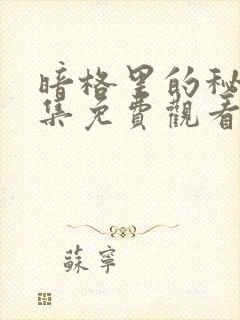 暗格里的秘
集免費觀看
蘇寧